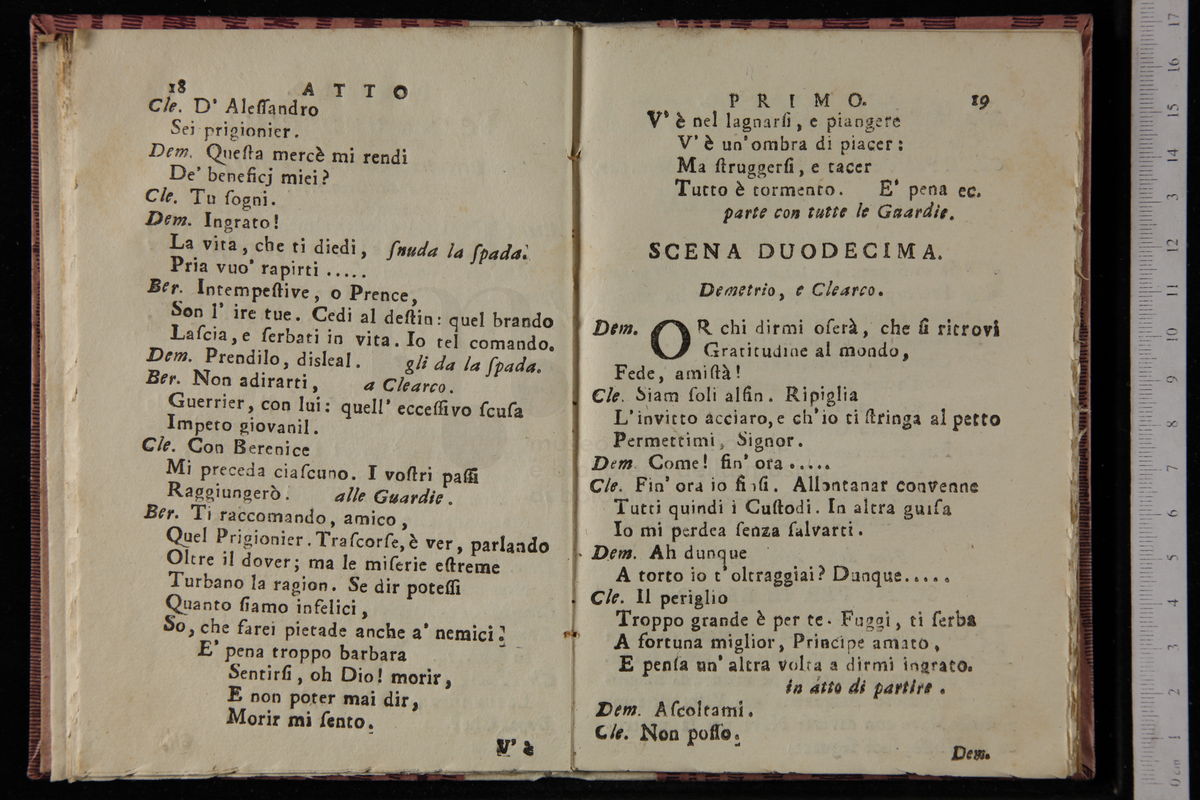 18 ATTO
Cle. D' Aleſſandro
Sei prigionier.
Dem. Queſta mercè mi rendi
De' beneficj miei?
Cle. Tu ſogni.
Dem. Ingrato!
La vita, che ti diedi, ſnuda la ſpada.
Pria vuo' rapirti .....
Ber. Intempeſtive, o Prence,
Son l' ire tue. Cedi al deſtin: quel brando
Laſcia, e ſerbati in vita. Io tel comando.
Dem. Prendilo, disleal. gli da la ſpada.
Ber. Non adirarti, a Clearco.
Guerrier, con lui: quell' ecceſſivo ſcuſa
Impeto giovanil.
Cle. Con Berenice
Mi preceda ciaſcuno. I voſtri paſſi
Raggiungerò. alle Guardie.
Ber. Ti raccomando, amico,
Quel Prigionier. Traſcorſe, è ver, parlando
Oltre il dover; ma le miſerie eſtreme
Turbano la ragion. Se dir poteſſi
Quanto ſiamo infelici,
So, che farei pietade anche a' nemici.
E' pena troppo barbara
Sentirſi, oh Dio! morir,
E non poter mai dir,
Morir mi ſento.
V' è
PRIMO. 19
V' è nel lagnarſi, e piangere
V' è un' ombra di piacer:
Ma ſtruggerſi, e tacer
Tutto è tormento. E' pena ec.
parte con tutte le Guardie.
SCENA DUODECIMA.
Demetrio, e Clearco.
Dem. OR chi dirmi oſerà, che ſi ritrovi
Gratitudine al mondo,
Fede, amiſtà!
Cle. Siam ſoli alfin. Ripiglia
L' invitto acciaro, e ch' io ti ſtringa al petto
Permettimi, Signor.
Dem. Come! fin' ora .....
Cle. Fin' ora io finſi. Allontanar convenne
Tutti quindi i Cuſtodi. In altra guiſa
Io mi perdea ſenza ſalvarti.
Dem. Ah dunque
A torto io t' oltraggiai? Dunque.....
Cle. Il periglio
Troppo grande è per te. Fuggi, ti ſerba
A fortuna miglior, Principe amato,
E penſa un' altra volta a dirmi ingrato.
in atto di partire.
Dem. Aſcoltami.
Cle. Non poſſo.
Dem.